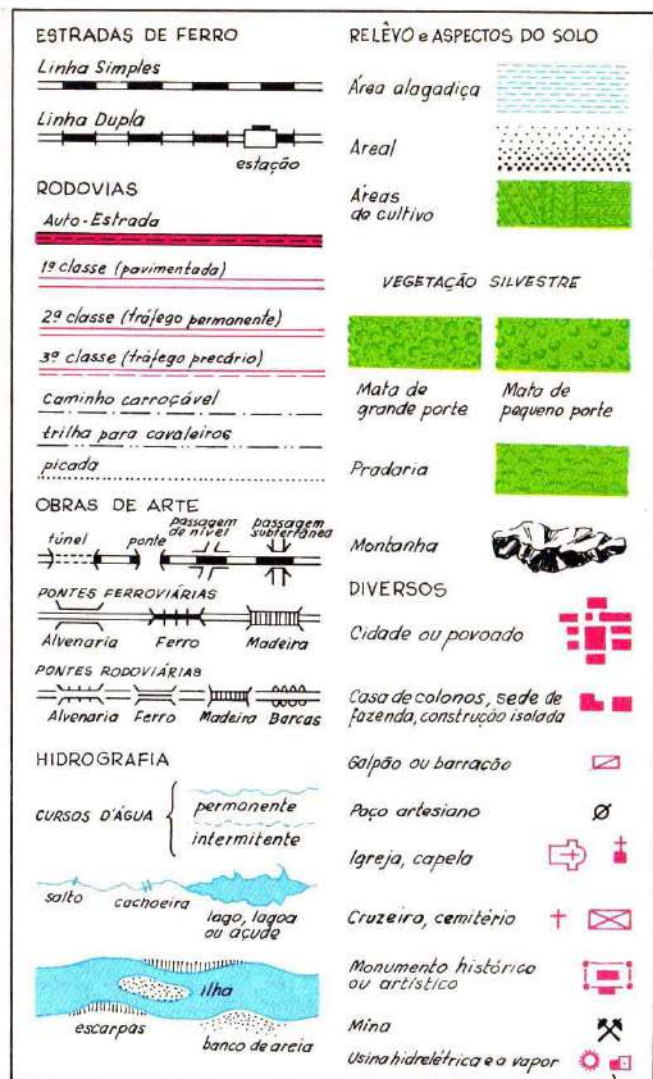 ESTRADAS DE FERRO
Linha Simples
Linha Dupla
estação
RODOVIAS
Auto-Estrada
1ª classe (pavimentada)
2ª classe (tráfego permanente)
3ª classe (tráfego precário)
Caminho carroçável
trilha para cavaleiros
picada
OBRAS DE ARTE
túnel
ponte
passagem
de nível
passagem
subterrânea
PONTES FERROVIÁRIAS
Alvenaria Ferro Madeira
PONTES RODOVIÁRIAS
Alvenaria Ferro Madeira Barcas
HIDROGRAFIA
CURSOS D'ÁGUA
permanente
intermitente
salto
cachoeira
lago, lagoa
ou açude
ilha
escarpas
banco de areia
RELÊVO e ASPECTOS DO SOLO
Área alagadiça
Areal
Áreas
de cultivo
VEGETAÇÃO SILVESTRE
Mata de
grande porte
Mata de
pequeno porte
Pradaria
Montanha
DIVERSOS
Cidade ou povoado
Casa de colonos, sede de
fazenda, construção isolada
Galpão ou barracão
Poço artesiano
Igreja, capela
Cruzeiro, cemitério
Monumento histórico
ou artístico
Mina
Usina hidrelétrica e a vapor